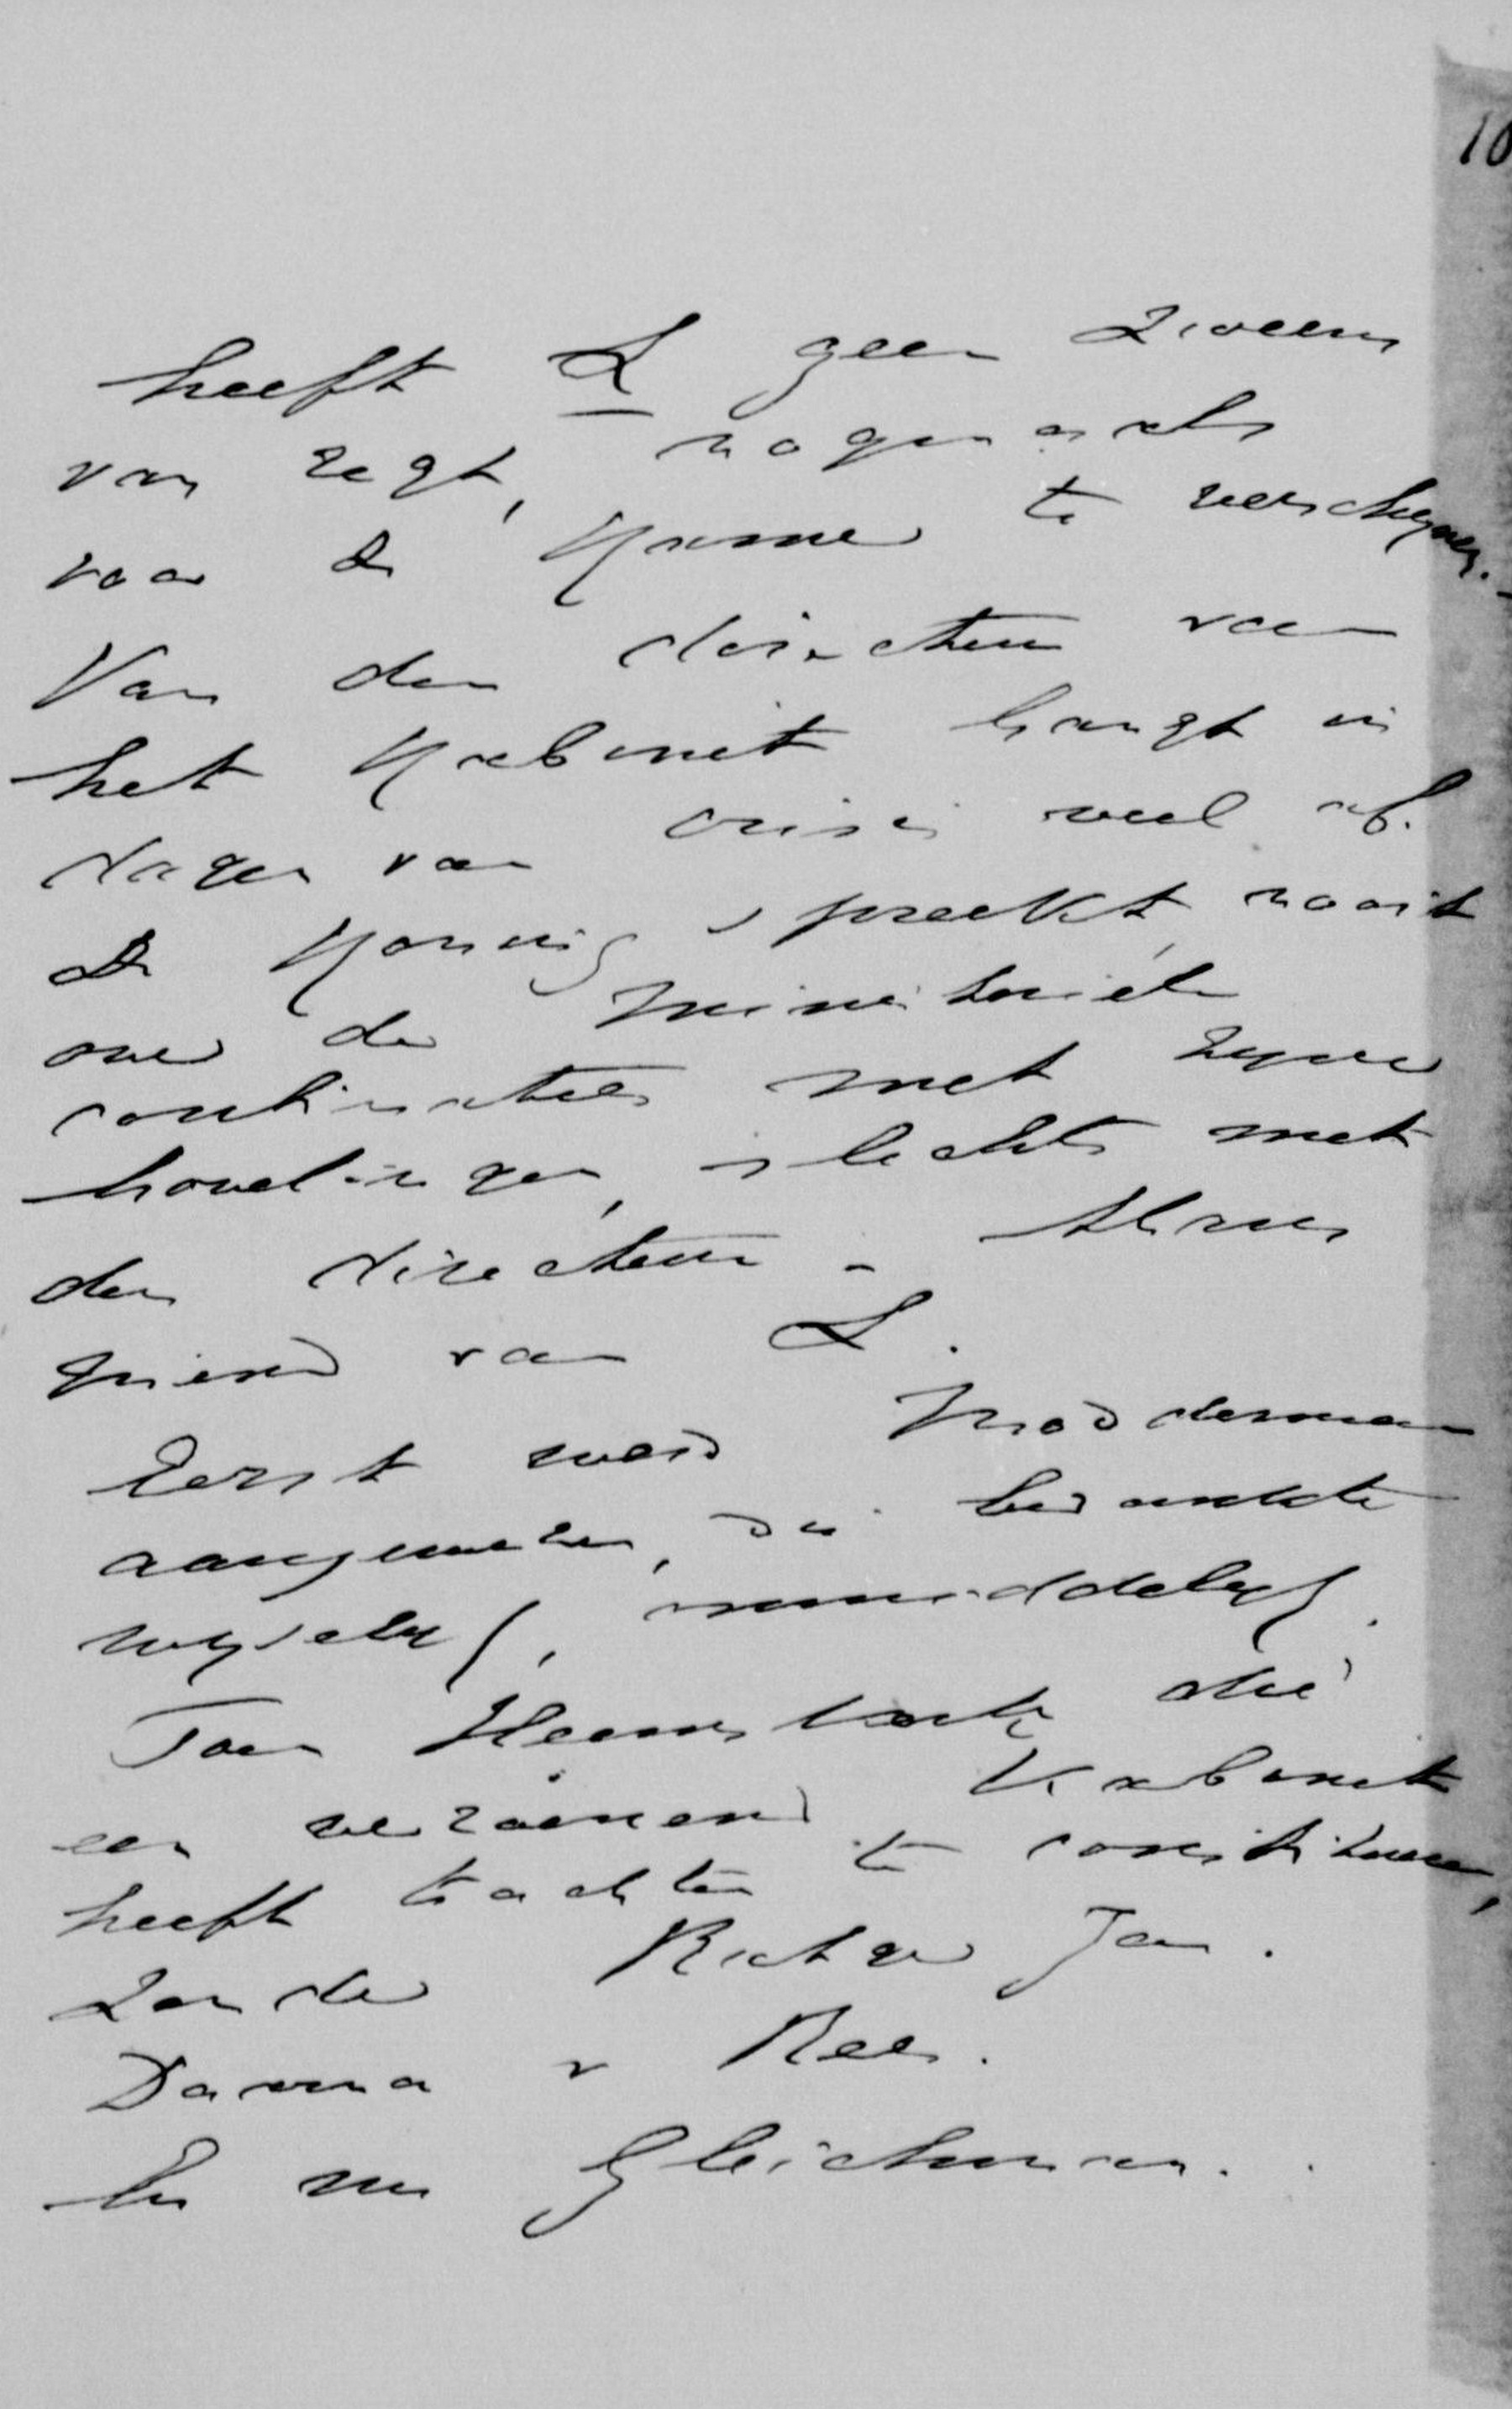 10
heeft L geen zweem
van regt, nogmaals
voor de Kamer te verschynen.
Van den directeur van
het Kabinet hangt in
dagen van crisis veel af.
De Koning spreekt nooit
over de ministeriële
combinaties met zyne
hovelingen, slechts met
den directeur -
vriend van L.
Eerst werd Modderman
aangewezen, die bedankte
wyselyk, onmiddelyk.
Toen Heemskerk die
een verzoenend Kabinet
heeft trachten te constitueren,
zonder Rutgers Jan.
Damna v Rees.
En nu Gleichman.